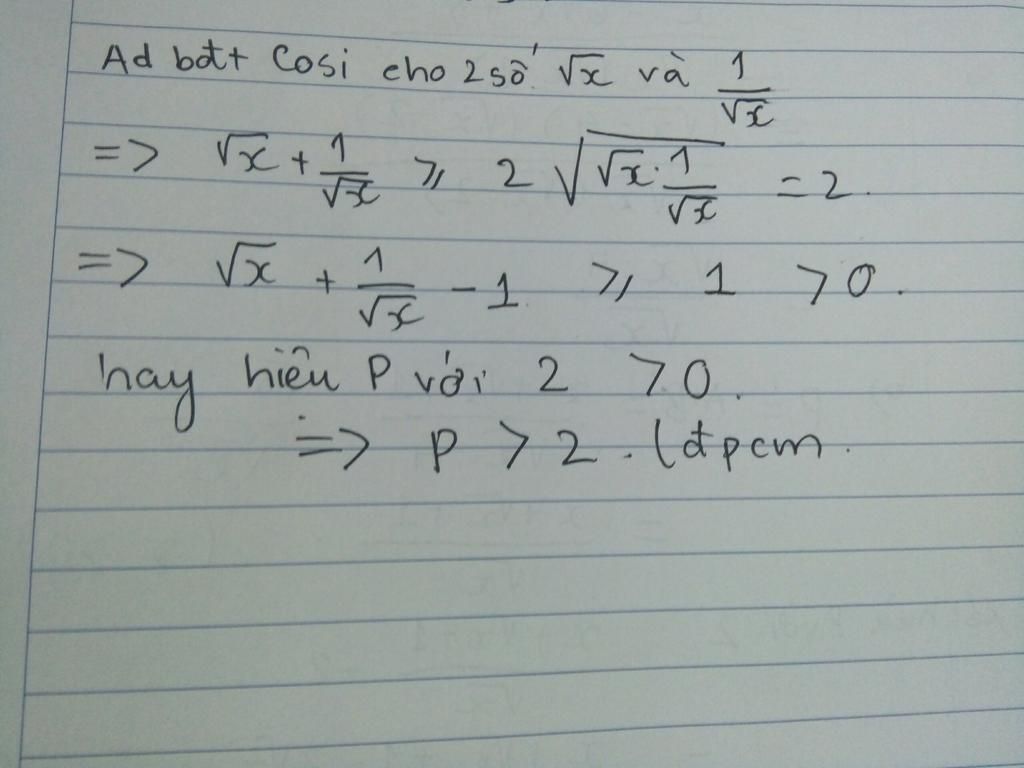 Ad bđt Cosi cho 2 số √x và 1/√x
=> √x + 1/√x ⩾ 2 √(√x · 1/√x) = 2.
=> √x + 1/√x - 1 ⩾ 1 > 0.
hay hiệu P với 2 > 0.
=> P > 2. (đpcm.